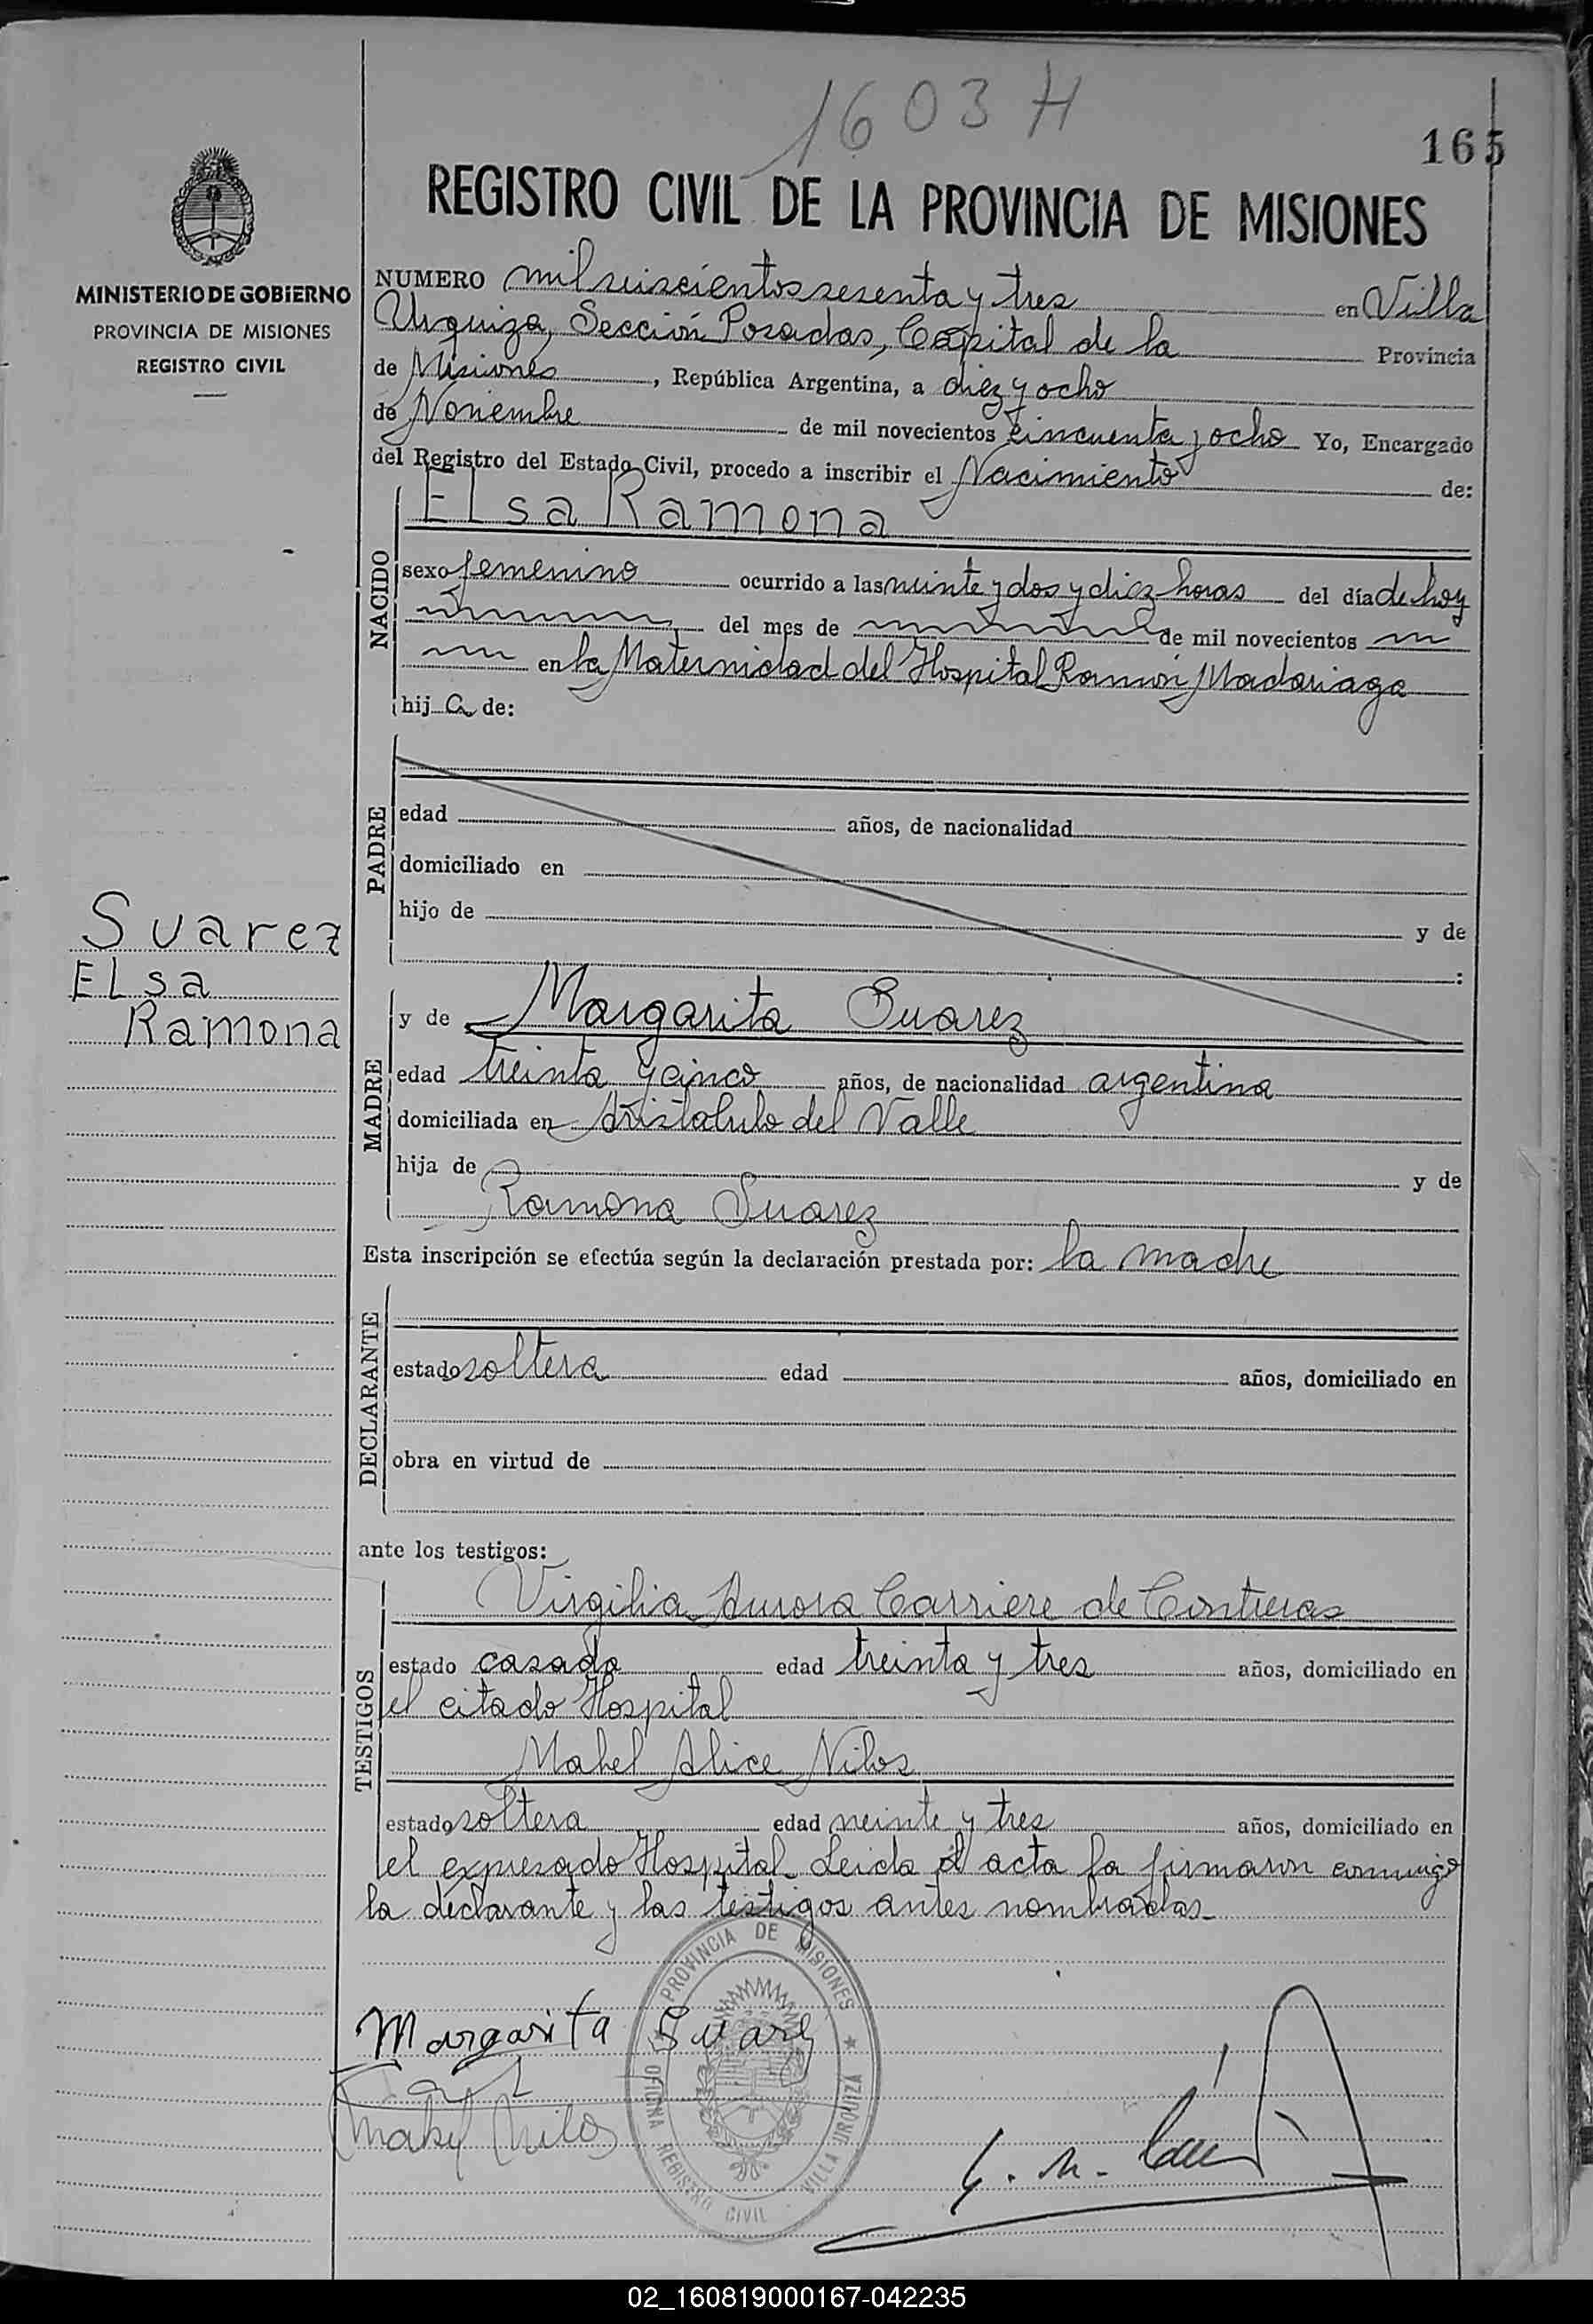 1603 H
165
REGISTRO CIVIL DE LA PROVINCIA DE MISIONES
MINISTERIO DE GOBIERNO
PROVINCIA DE MISIONES
REGISTRO CIVIL
NUMERO mil seiscientos sesenta y tres en Villa
Urquiza, Sección Posadas, Capital de la Provincia
de Misiones, República Argentina, a diez y ocho
de Noviembre de mil novecientos cincuenta y ocho Yo, Encargado
del Registro del Estado Civil, procedo a inscribir el Nacimiento de:
Elsa Ramona
NACIDO
sexo femenino ocurrido a las veinte y dos y diez horas del día de hoy
del mes de de mil novecientos
en la Maternidad del Hospital Ramón Madariaga
hij a de:
PADRE
edad años, de nacionalidad
domiciliado en
hijo de y de
:
Suarez
Elsa
Ramona
MADRE
y de Margarita Suarez
edad treinta y cinco años, de nacionalidad argentina
domiciliada en Aristobulo del Valle
hija de y de
Ramona Suarez
Esta inscripción se efectúa según la declaración prestada por: la madre
DECLARANTE
estado soltera edad años, domiciliado en
obra en virtud de
ante los testigos:
TESTIGOS
Virgilia Aurora Carriere de Contreras
estado casada edad treinta y tres años, domiciliado en
el citado Hospital
Mabel Alice Nilos
estado soltera edad veinte y tres años, domiciliado en
el expresado Hospital. Leida el acta la firmaron conmigo
la declarante y las testigos antes nombradas.
PROVINCIA DE MISIONES
OFICINA REGISTRO CIVIL VILLA URQUIZA
Margarita Suarez
Mabel Nilos
02_160819000167-042235